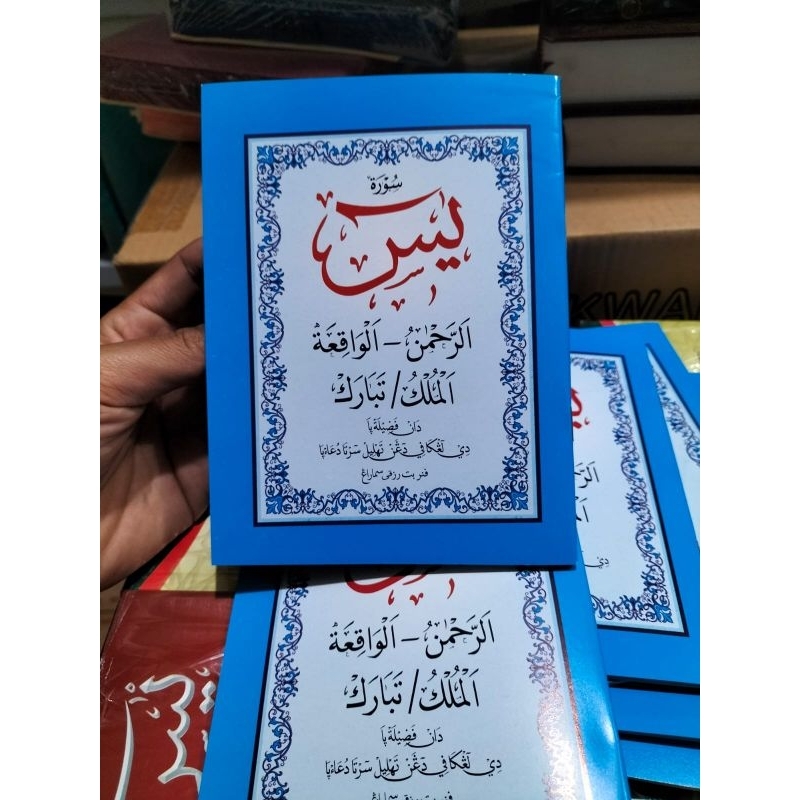 سُوْرَة
يٰسٓ
اَلرَّحْمٰنُ - اَلْوَاقِعَةُ
اَلْمُلْكُ / تَبَارَكَ
دَانْ فَضِيْلَةْ ڽَا
دِيْ لَڠْكَافِيْ دَڠَنْ تَهْلِيْل سَرْتَا دُعَاءْ ڽَا
فنربت رزقى سماراڠ
يٰسٓ
KWA
اَلرَّحْمٰنُ - اَلْوَاقِعَةُ
اَلْمُلْكُ / تَبَارَكَ
دَانْ فَضِيْلَةْ ڽَا
دِيْ لَڠْكَافِيْ دَڠَنْ تَهْلِيْل سَرْتَا دُعَاءْ ڽَا
فنربت رزقى سماراڠ